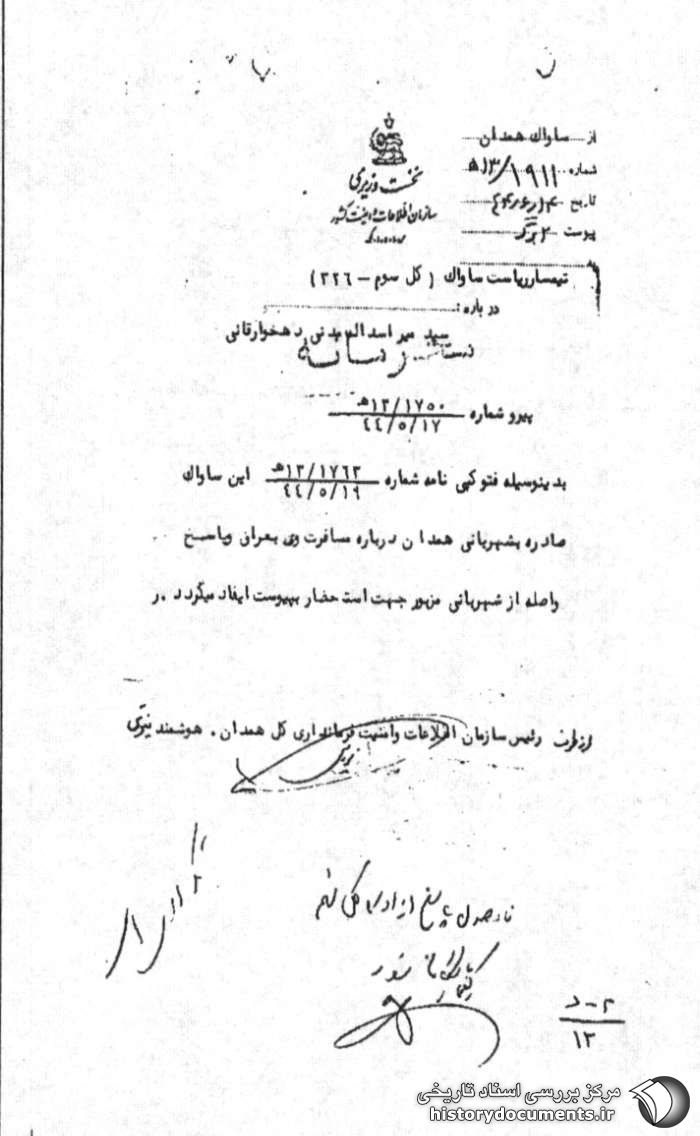 از ساواک همدان
شماره ۱۹۱۱/۱۳ه
تاریخ
پیوست ۲ برگ
نخست وزیری
سازمان اطلاعات و امنیت کشور
س.ا.و.ا.ک
به
تیمسار ریاست ساواک (کل سوم – ۳۲۶)
درباره:
سید میر اسداله مدنی دهخوارقانی
پیرو شماره ۱۳/۱۷۵۰ه
۴۴/۵/۱۷
بدینوسیله فتوکپی نامه شماره ۱۳/۱۷۶۳ه این ساواک
۴۴/۵/۱۹
صادره بشهربانی همدان درباره مسافرت وی بعراق وپاسخ
واصله از شهربانی مزبور جهت استحضار بپیوست ایفاد میگردد .ر
از طرف رئیس سازمان اطلاعات وامنیت فرمانداری کل همدان . هوشمند
تا وصول پاسخ از اداره کل نهم
بایگانی شود
۲-د
۱۲
مرکز بررسی اسناد تاریخی
historydocuments.ir